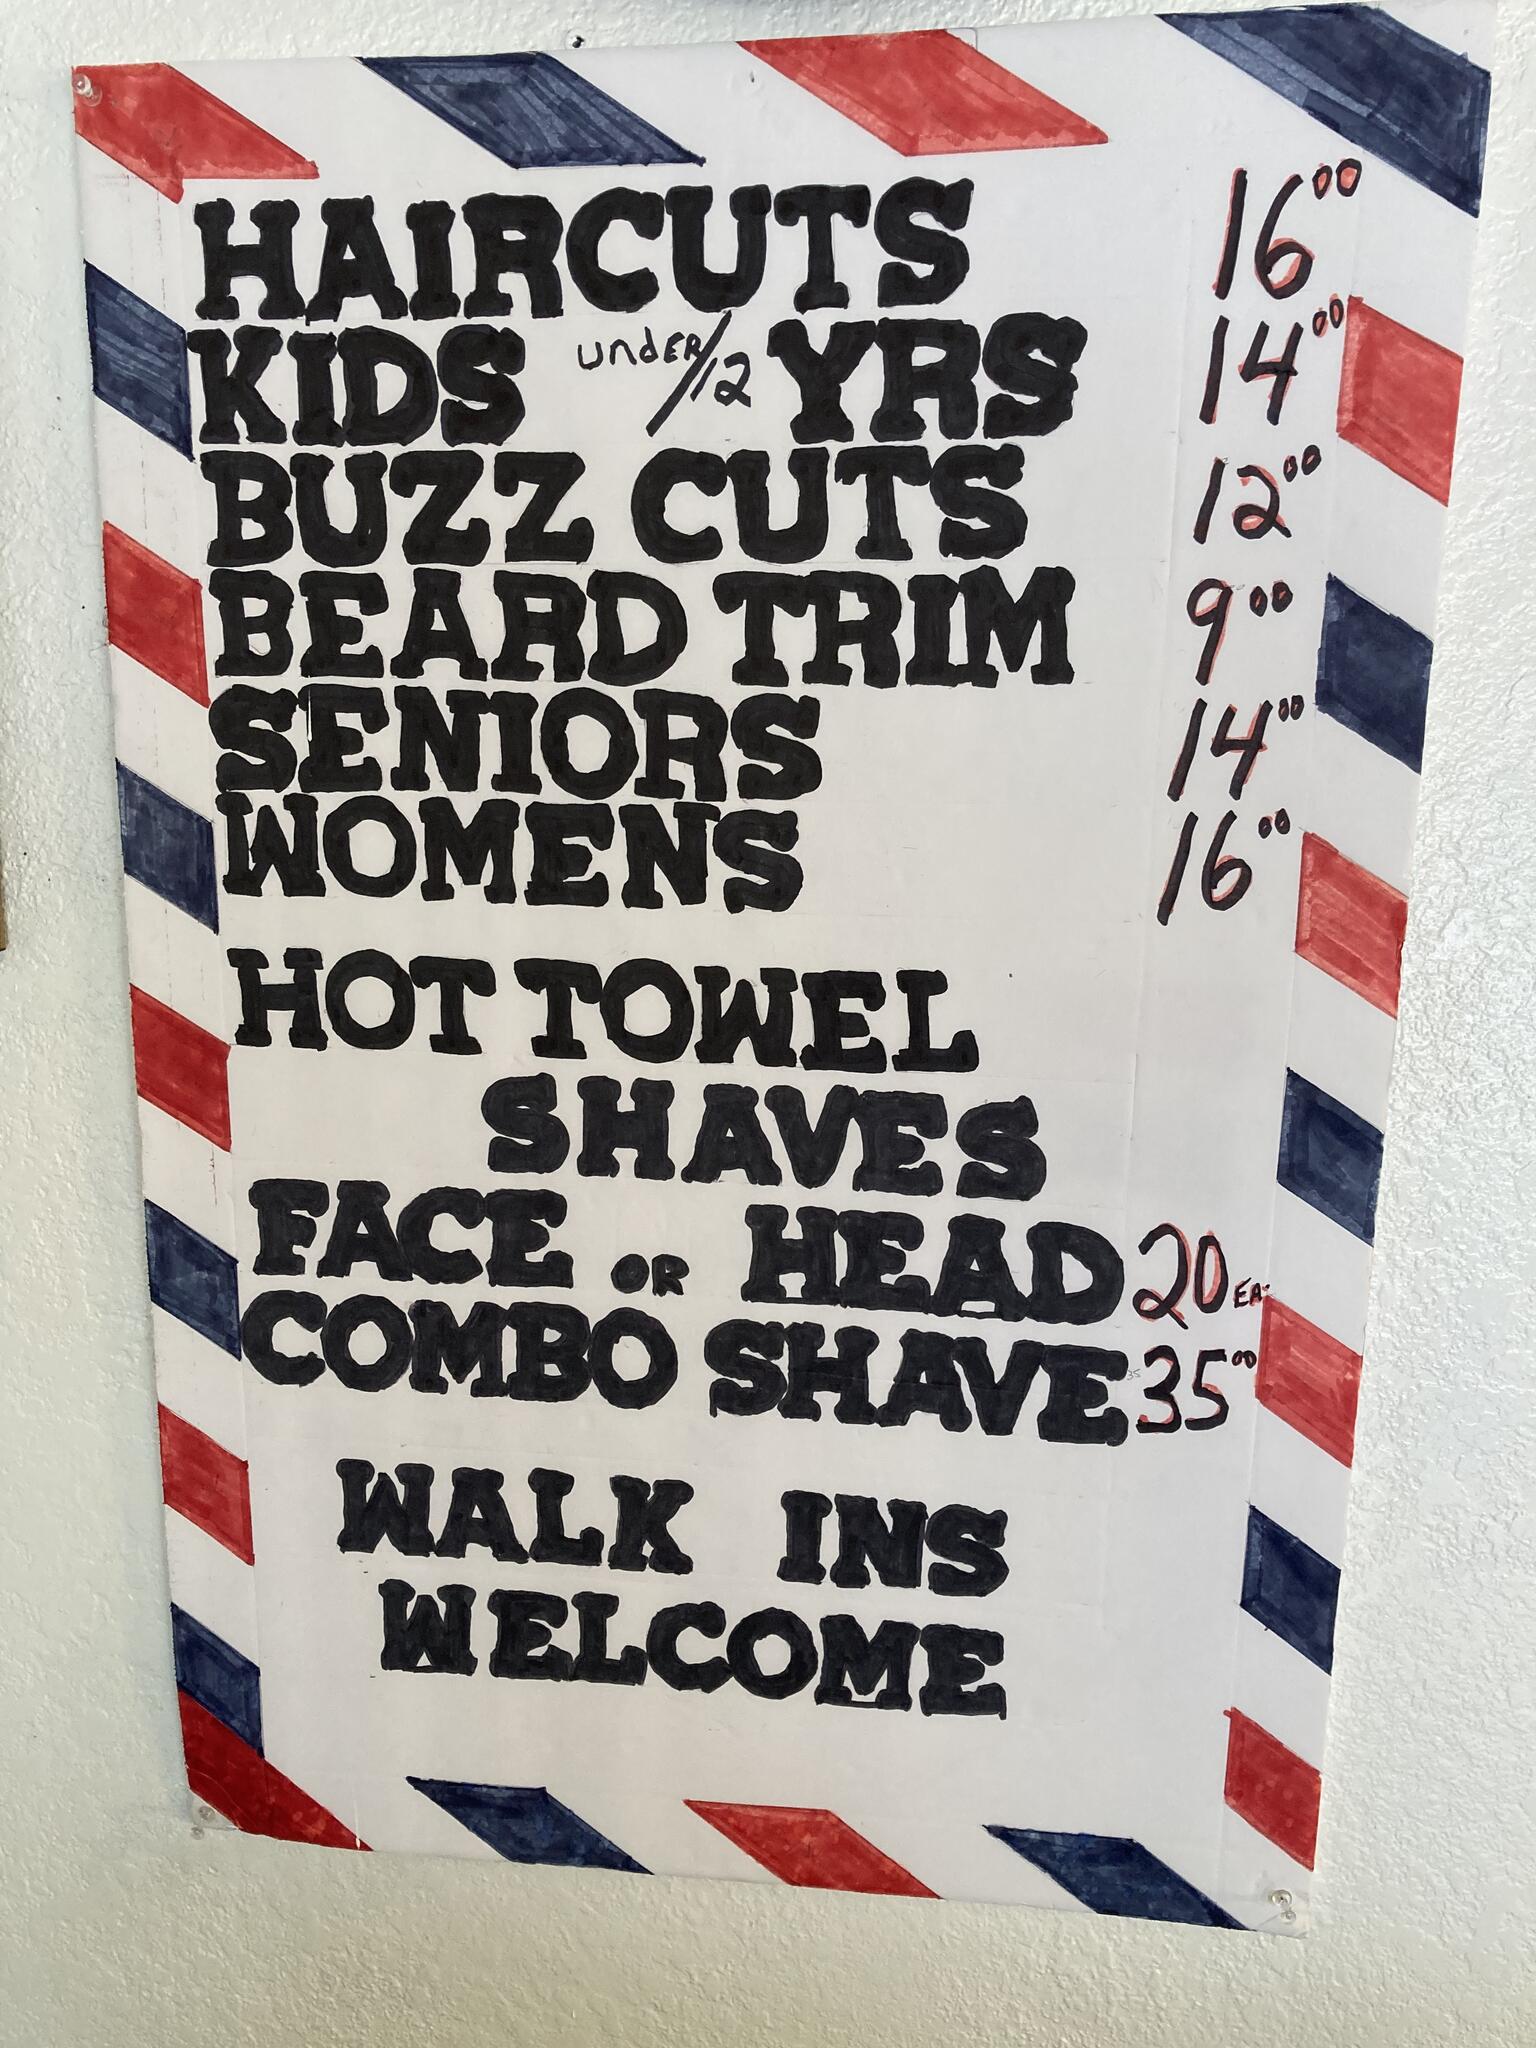 HAIRCUTS 16⁰⁰
KIDS UNDER/12 YRS 14⁰⁰
BUZZ CUTS 12⁰⁰
BEARD TRIM 9⁰⁰
SENIORS 14⁰⁰
WOMENS 16⁰⁰
HOT TOWEL
SHAVES
FACE OR HEAD 20 EA.
COMBO SHAVE 35 35⁰⁰
WALK INS
WELCOME